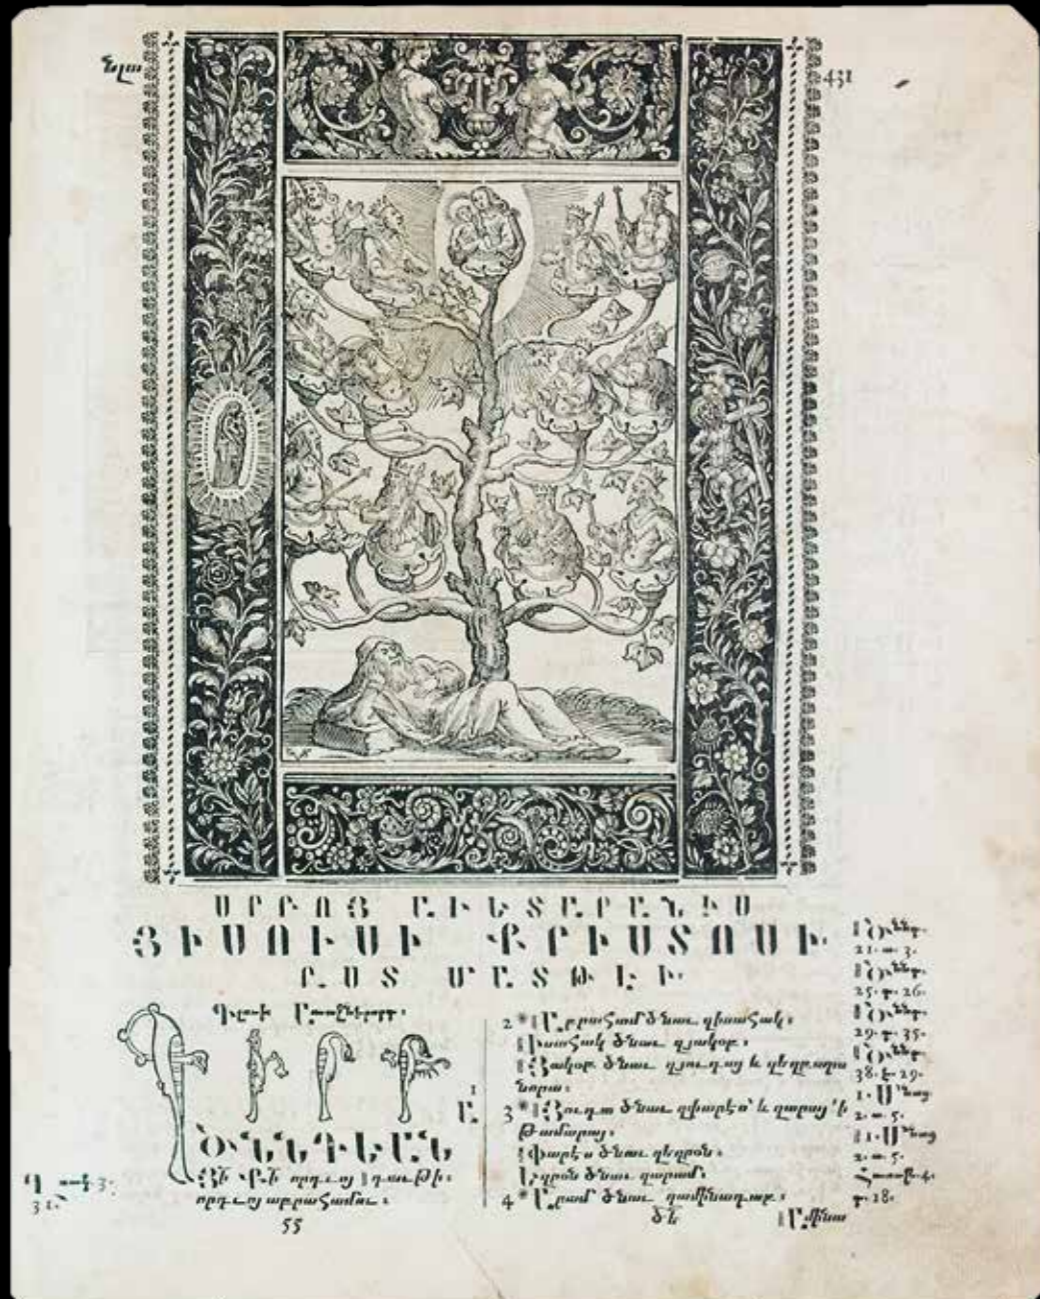 ՆԼԱ
431
ՍՐԲՈՅ ԱՒԵՏԱՐԱՆԻՍ
ՅԻՍՈՒՍԻ ՔՐԻՍՏՈՍԻ
ԸՍՏ ՄԱՏԹԷԻ
Գլուխ Առաջներորդ։
1
ԾՆՆԴԵԱՆ
ՅԻ ՔԻ որդւոյ դաւթի։
որդւոյ աբրահամու։
3.
31.
55
2 * Աբրահամ ծնաւ զիսահակ։
Իսահակ ծնաւ զյակոբ։
Յակոբ ծնաւ զյուդայ և զեղբարս
նորա։
3 * Յուդա ծնաւ զփարէս՝ և զարայ ՚ի
թամարայ։
Փարէս ծնաւ զեզրօն։
Եզրօն ծնաւ զարամ։
4 * Արամ ծնաւ զամինադաբ։
ԾՆ. 21. ա. 3.
ԾՆ. 25. դ. 26.
ԾՆ. 29. դ. 35.
ԾՆ. 38. 29.
1. Մնաց 2. ա. 5.
1. Մնաց 2. ա. 5.
Հռութ. 4. դ. 18.
ԾԵ
Ամինա